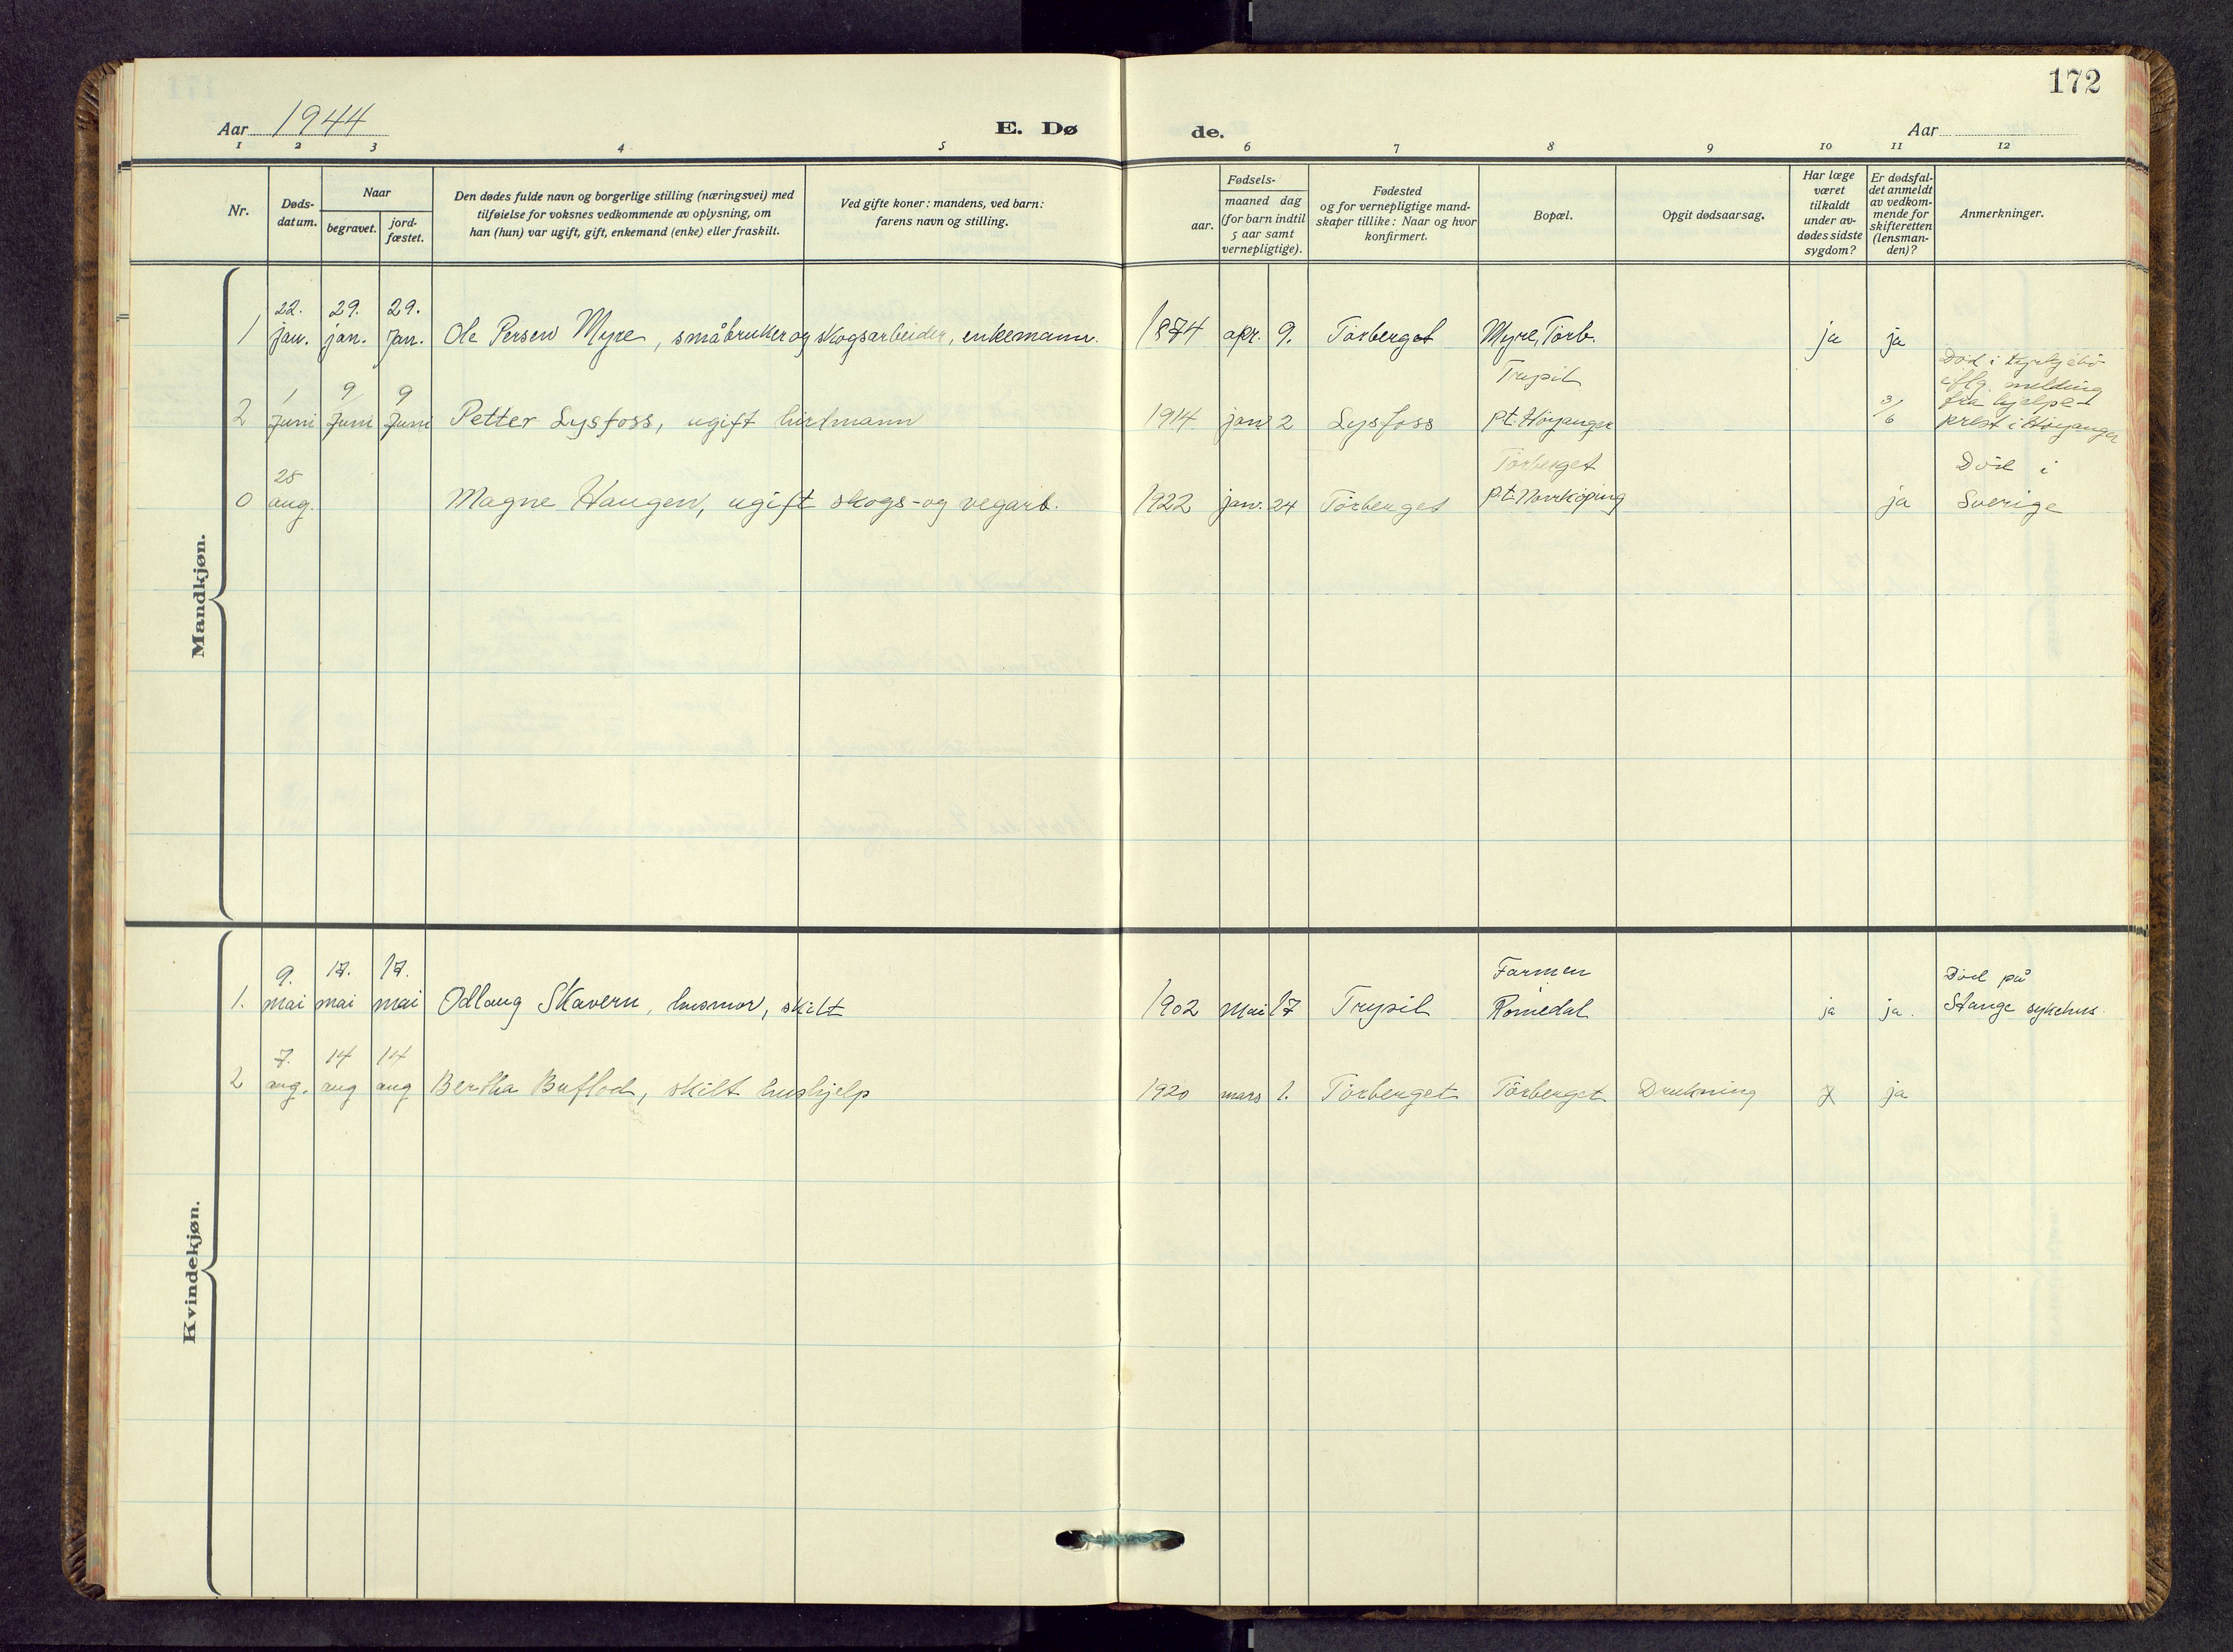 172
Aar 1944
E. Dø
de.
Aar
1 2 3 4 5 6 7 8 9 10 11 12
Nr.
Døds-
datum.
Naar
begravet.
jord-
fæstet.
Den dødes fulde navn og borgerlige stilling (næringsvei) med
tilføielse for voksnes vedkommende av oplysning, om
han (hun) var ugift, gift, enkemand (enke) eller fraskilt.
Ved gifte koner: mandens, ved barn:
farens navn og stilling.
Fødsels-
aar.
maaned dag
(for barn indtil
5 aar samt
vernepligtige).
Fødested
og for vernepligtige mand-
skaper tillike: Naar og hvor
konfirmert.
Bopæl.
Opgit dødsaarsag.
Har læge
været
tilkaldt
under av-
dødes sidste
sygdom?
Er dødsfal-
det anmeldt
av vedkom-
mende for
skifteretten
(lensman-
den)?
Anmerkninger.
Mandkjøn.
22. 29. 29.
1 jan. jan. jan. Ole Persen Myre, småbruker og skogsarbeider, enkemann. 1874 apr. 9. Törberget Myre, Törb. ja ja
1 9 9 Trysil Död i Kyrkjebö
iflg. melding
fra hjelpe-
2 Juni Juni Juni Petter Lysfoss, ugift hirdmann 1914 jan 2 Lysfoss pt. Höyanger 3/6 prest i Höyanger
25 Törberget Död i
0 aug. Magne Haugen, ugift skogs- og vegarb. 1922 jan. 24 Törberget pt. Norrköping ja Sverige
Kvindekjøn.
9. 17. 17. Farmen Död på
1. mai mai mai Odlaug Skavern, husmor, skilt 1902 Mai 17 Trysil Romedal ja ja. Stange sykehus.
7. 14 14
2 aug. aug aug Bertha Buflod, skilt hushjelp 1920 mars 1. Törberget Törberget Drukning ja